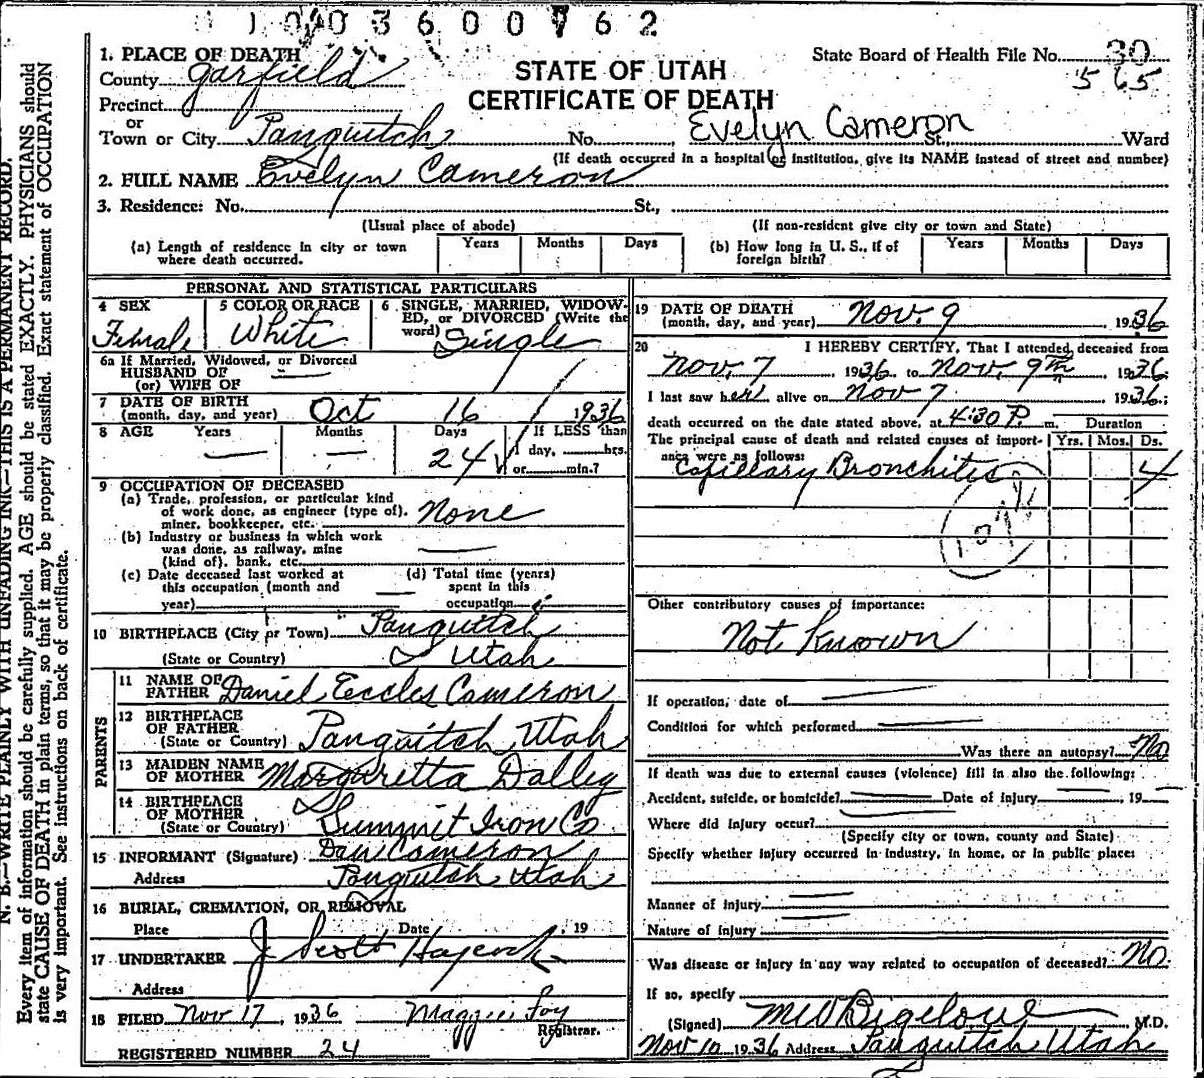 1003600762
1. PLACE OF DEATH
County Garfield
Precinct
or
Town or City Panguitch No. Evelyn Cameron St., Ward
State Board of Health File No. 30
565
STATE OF UTAH
CERTIFICATE OF DEATH
(If death occurred in a hospital or institution, give its NAME instead of street and number)
2. FULL NAME Evelyn Cameron
3. Residence: No. St.,
(Usual place of abode) (If non-resident give city or town and State)
(a) Length of residence in city or town where death occurred. Years Months Days
(b) How long in U. S., if of foreign birth? Years Months Days
PERSONAL AND STATISTICAL PARTICULARS
4 SEX
Female
5 COLOR OR RACE
White
6 SINGLE, MARRIED, WIDOW-
ED, or DIVORCED (Write the
word) Single
6a If Married, Widowed, or Divorced
HUSBAND OF
(or) WIFE OF
7 DATE OF BIRTH
(month, day, and year) Oct 16 1936
8 AGE Years Months Days If LESS than
24 1 day, hrs.
or min.?
9 OCCUPATION OF DECEASED
(a) Trade, profession, or particular kind
of work done, as engineer (type of),
miner, bookkeeper, etc. None
(b) Industry or business in which work
was done, as railway, mine
(kind of), bank, etc.
(c) Date deceased last worked at
this occupation (month and
year)
(d) Total time (years)
spent in this
occupation
10 BIRTHPLACE (City or Town) Panguitch
(State or Country) Utah
PARENTS
11 NAME OF
FATHER Daniel Eccles Cameron
12 BIRTHPLACE
OF FATHER
(State or Country) Panguitch Utah
13 MAIDEN NAME
OF MOTHER Margaretta Dalley
14 BIRTHPLACE
OF MOTHER
(State or Country) Summit Iron Co
15 INFORMANT (Signature) Dan Cameron
Address Panguitch Utah
16 BURIAL, CREMATION, OR REMOVAL
Place Date , 19
17 UNDERTAKER J Scott Haycock
Address
18 FILED Nov 17, 1936 Maggie Foy
Registrar.
REGISTERED NUMBER 24
19 DATE OF DEATH
(month, day, and year) Nov. 9 1936
20 I HEREBY CERTIFY, That I attended deceased from
Nov. 7 1936 to Nov. 9th 1936
I last saw her alive on Nov 7 1936;
death occurred on the date stated above, at 4:30 P. m.
Duration
The principal cause of death and related causes of import-
ance were as follows: Yrs. Mos. Ds.
Capillary Bronchitis 4
Other contributory causes of importance:
Not Known
If operation, date of
Condition for which performed
Was there an autopsy? No
If death was due to external causes (violence) fill in also the following:
Accident, suicide, or homicide? Date of injury , 19
Where did injury occur?
(Specify city or town, county and State)
Specify whether injury occurred in industry, in home, or in public place:
Manner of injury
Nature of injury
Was disease or injury in any way related to occupation of deceased? No.
If so, specify
(Signed) M W Bigelow M.D.
Nov 10 1936 Address Panguitch Utah
N. B.—WRITE PLAINLY WITH UNFADING INK—THIS IS A PERMANENT RECORD.
Every item of information should be carefully supplied. AGE should be stated EXACTLY. PHYSICIANS should
state CAUSE OF DEATH in plain terms, so that it may be properly classified. Exact statement of OCCUPATION
is very important. See instructions on back of certificate.